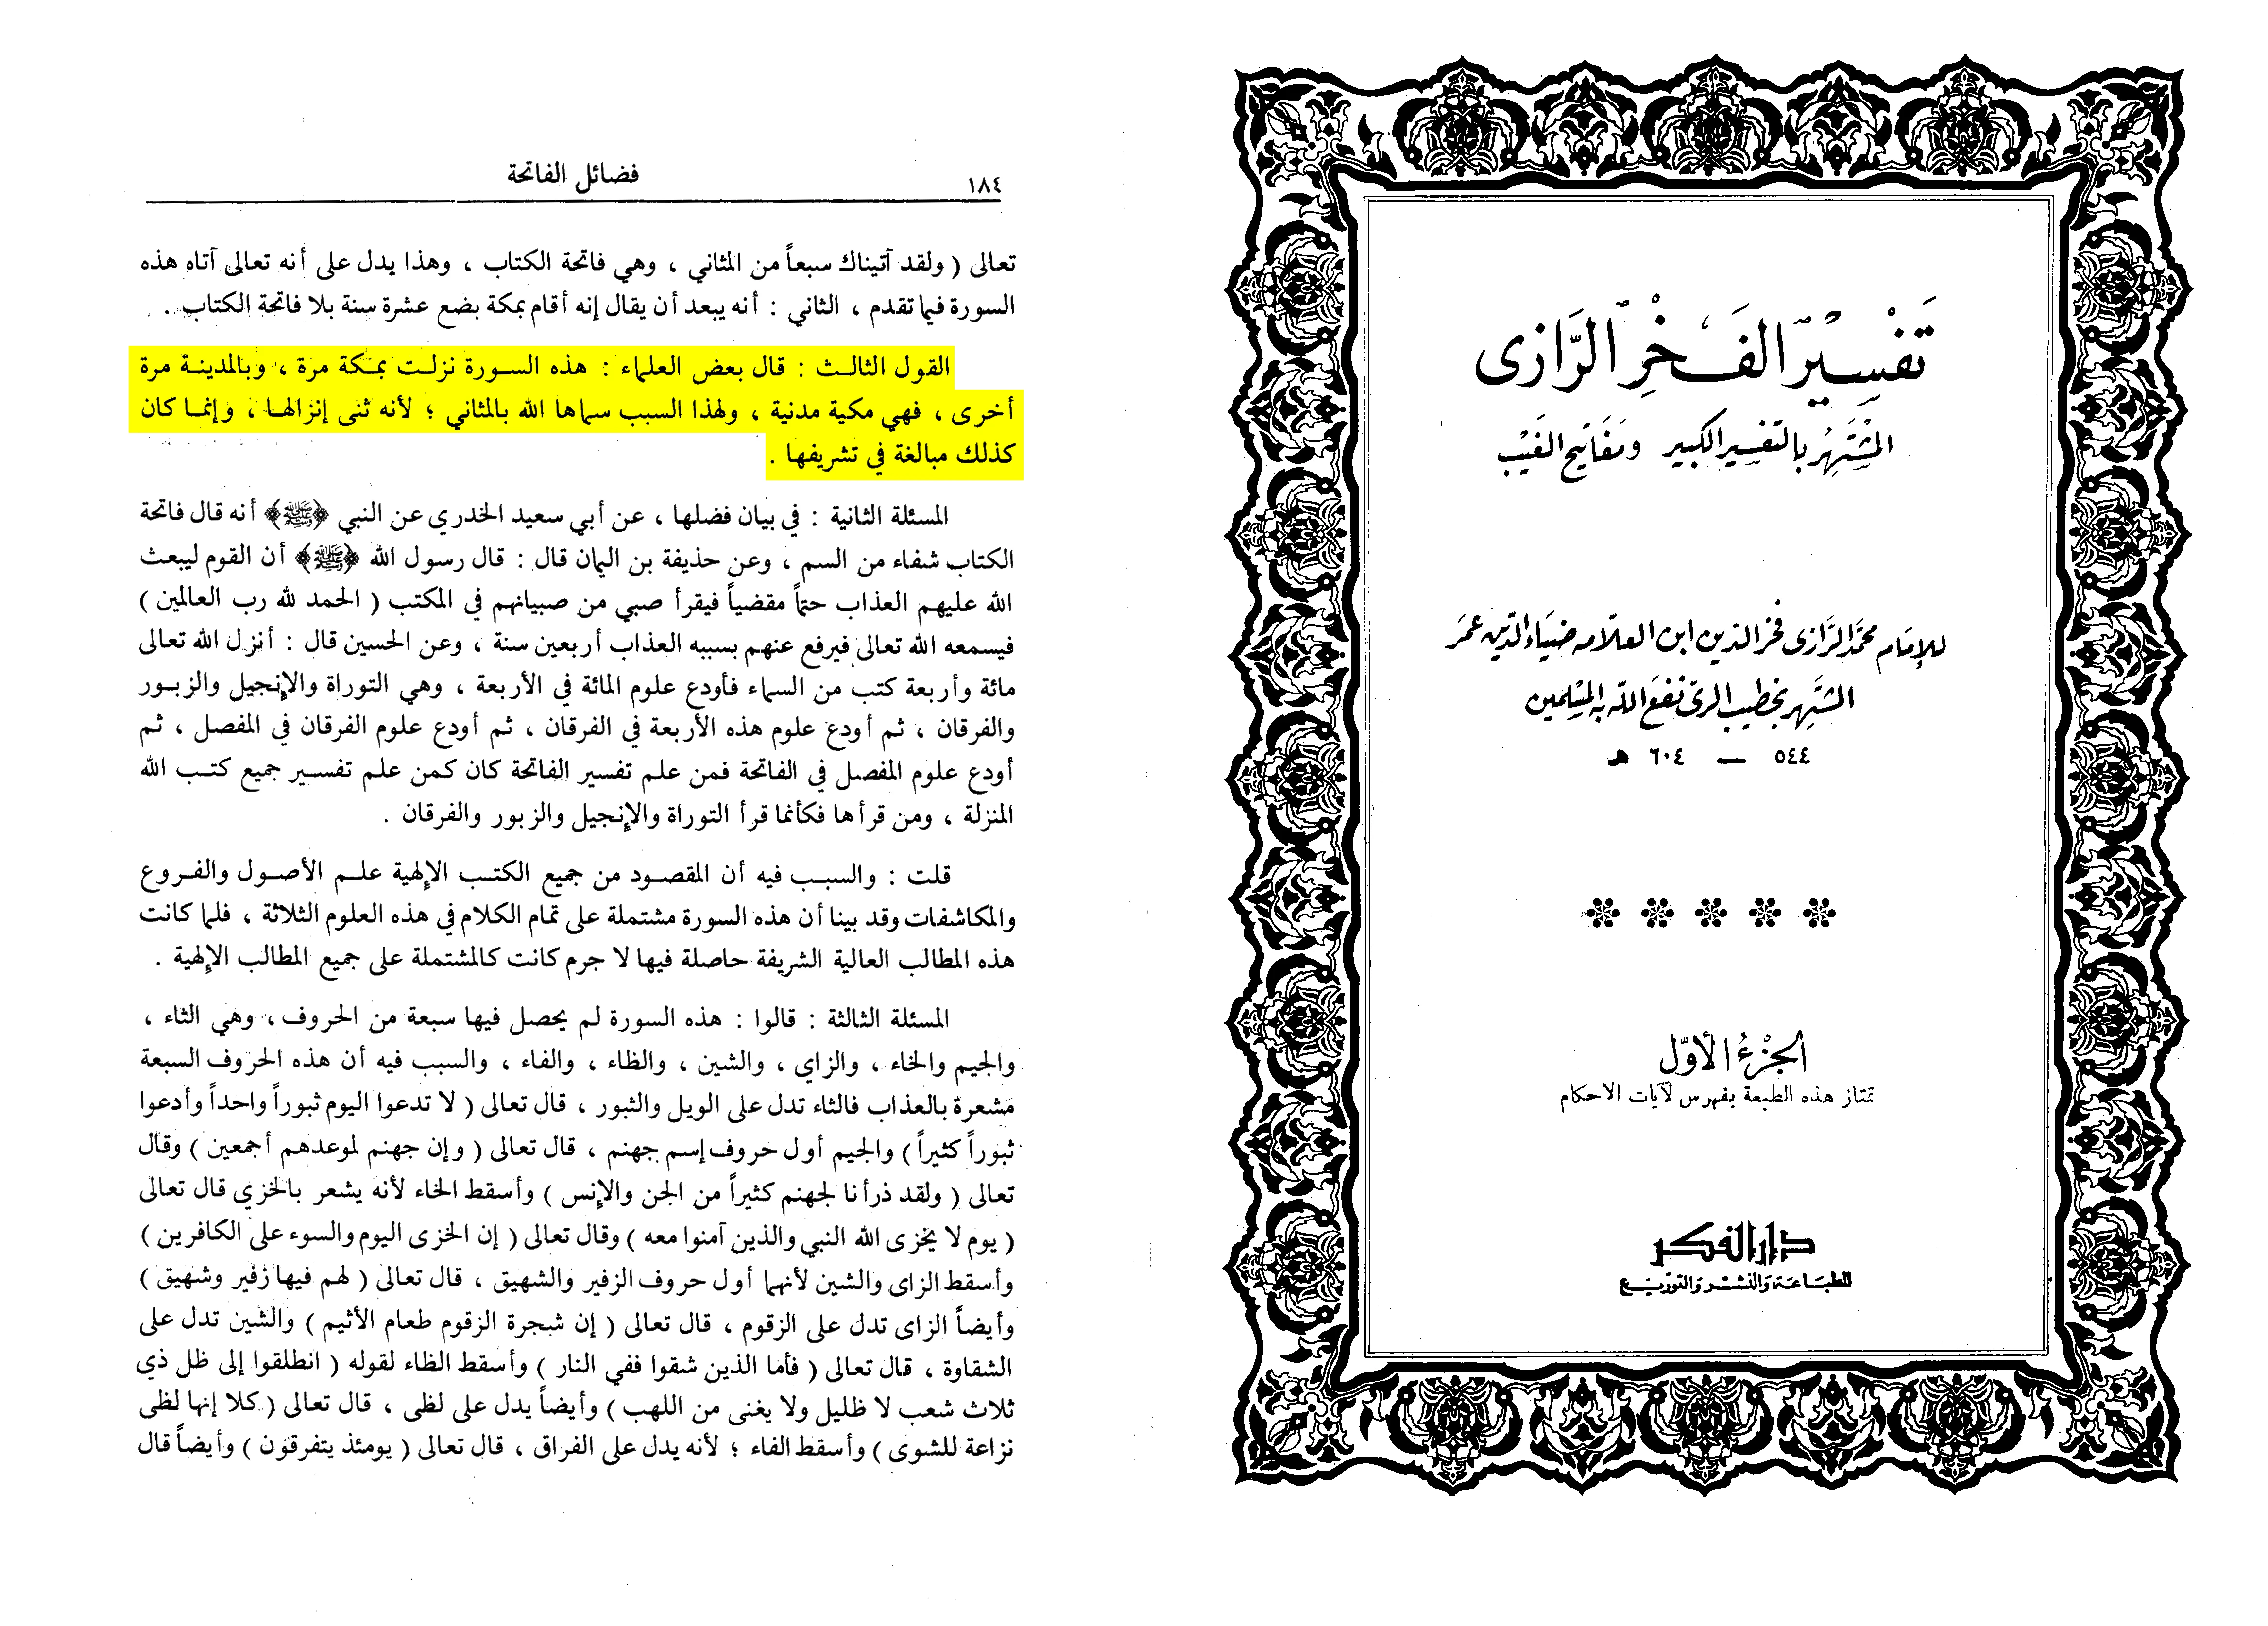 تَفْسِيرُ الفَخْرِ الرَّازِى
المُشْتَهِرُ بِالتَّفْسِيرِ الكَبِيرِ وَمَفَاتِيحِ الغَيْبِ
للإمَام محمَّد الرَّازى فخر الدين ابن العلّامه ضيَاء الدّين عمَر
المشتَهِر بخطيب الرىّ نفعَ اللّه به المسْلمين
٥٤٤ — ٦٠٤ هـ
الجُزْءُ الأوّل
تمتاز هذه الطبعة بفهرس لآيات الاحكام
دار الفكر
للطبَاعَة وَالنشْر وَالتوزيْع
١٨٤
فضائل الفاتحة
تعالى ( ولقد آتيناك سبعاً من المثاني ، وهي فاتحة الكتاب ، وهذا يدل على أنه تعالى آتاه هذه
السورة فيما تقدم ، الثاني : أنه يبعد أن يقال إنه أقام بمكة بضع عشرة سنة بلا فاتحة الكتاب .
القول الثالث : قال بعض العلماء : هذه السورة نزلت بمكة مرة ، وبالمدينة مرة
أخرى ، فهي مكية مدنية ، ولهذا السبب سماها الله بالمثاني ؛ لأنه ثنى إنزالها ، وإنما كان
كذلك مبالغة في تشريفها .
المسئلة الثانية : في بيان فضلها ، عن أبي سعيد الخدري عن النبي ﴿ﷺ﴾ أنه قال فاتحة
الكتاب شفاء من السم ، وعن حذيفة بن اليمان قال : قال رسول الله ﴿ﷺ﴾ أن القوم ليبعث
الله عليهم العذاب حتماً مقضياً فيقرأ صبي من صبيانهم في المكتب ( الحمد لله رب العالمين )
فيسمعه الله تعالى فيرفع عنهم بسببه العذاب أربعين سنة ، وعن الحسين قال : أنزل الله تعالى
مائة وأربعة كتب من السماء فأودع علوم المائة في الأربعة ، وهي التوراة والإنجيل والزبور
والفرقان ، ثم أودع علوم هذه الأربعة في الفرقان ، ثم أودع علوم الفرقان في المفصل ، ثم
أودع علوم المفصل في الفاتحة فمن علم تفسير الفاتحة كان كمن علم تفسير جميع كتب الله
المنزلة ، ومن قرأها فكأنما قرأ التوراة والإنجيل والزبور والفرقان .
قلت : والسبب فيه أن المقصود من جميع الكتب الإلهية علم الأصول والفروع
والمكاشفات وقد بينا أن هذه السورة مشتملة على تمام الكلام في هذه العلوم الثلاثة ، فلما كانت
هذه المطالب العالية الشريفة حاصلة فيها لا جرم كانت كالمشتملة على جميع المطالب الإلهية .
المسئلة الثالثة : قالوا : هذه السورة لم يحصل فيها سبعة من الحروف ، وهي الثاء ،
والجيم والخاء ، والزاي ، والشين ، والظاء ، والفاء ، والسبب فيه أن هذه الحروف السبعة
مشعرة بالعذاب فالثاء تدل على الويل والثبور ، قال تعالى ( لا تدعوا اليوم ثبوراً واحداً وأدعوا
ثبوراً كثيراً ) والجيم أول حروف إسم جهنم ، قال تعالى ( وإن جهنم لموعدهم أجمعين ) وقال
تعالى ( ولقد ذرأنا لجهنم كثيراً من الجن والإنس ) وأسقط الخاء لأنه يشعر بالخزي قال تعالى
( يوم لا يخزى الله النبي والذين آمنوا معه ) وقال تعالى ( إن الخزى اليوم والسوء على الكافرين )
وأسقط الزاى والشين لأنهما أول حروف الزفير والشهيق ، قال تعالى ( لهم فيها زفير وشهيق )
وأيضاً الزاى تدل على الزقوم ، قال تعالى ( إن شجرة الزقوم طعام الأثيم ) والشين تدل على
الشقاوة ، قال تعالى ( فأما الذين شقوا ففي النار ) وأسقط الظاء لقوله ( انطلقوا إلى ظل ذي
ثلاث شعب لا ظليل ولا يغنى من اللهب ) وأيضاً يدل على لظى ، قال تعالى ( كلا إنها لظى
نزاعة للشوى ) وأسقط الفاء ؛ لأنه يدل على الفراق ، قال تعالى ( يومئذ يتفرقون ) وأيضاً قال